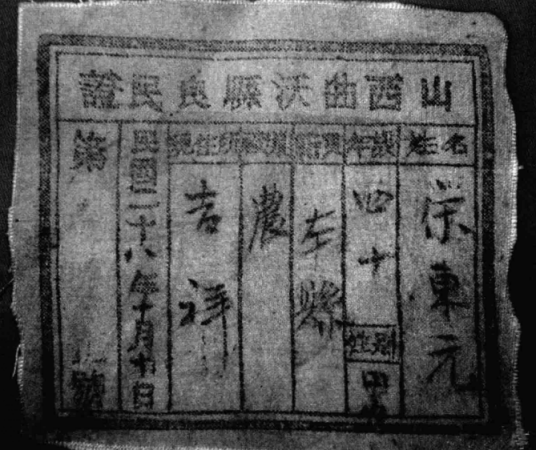 山西曲沃縣良民證
姓名
榮東元
年歲
四十
性別
男
籍貫
本縣
職業
農
現住所
吉祥
民國二十八年十月十日
第 號